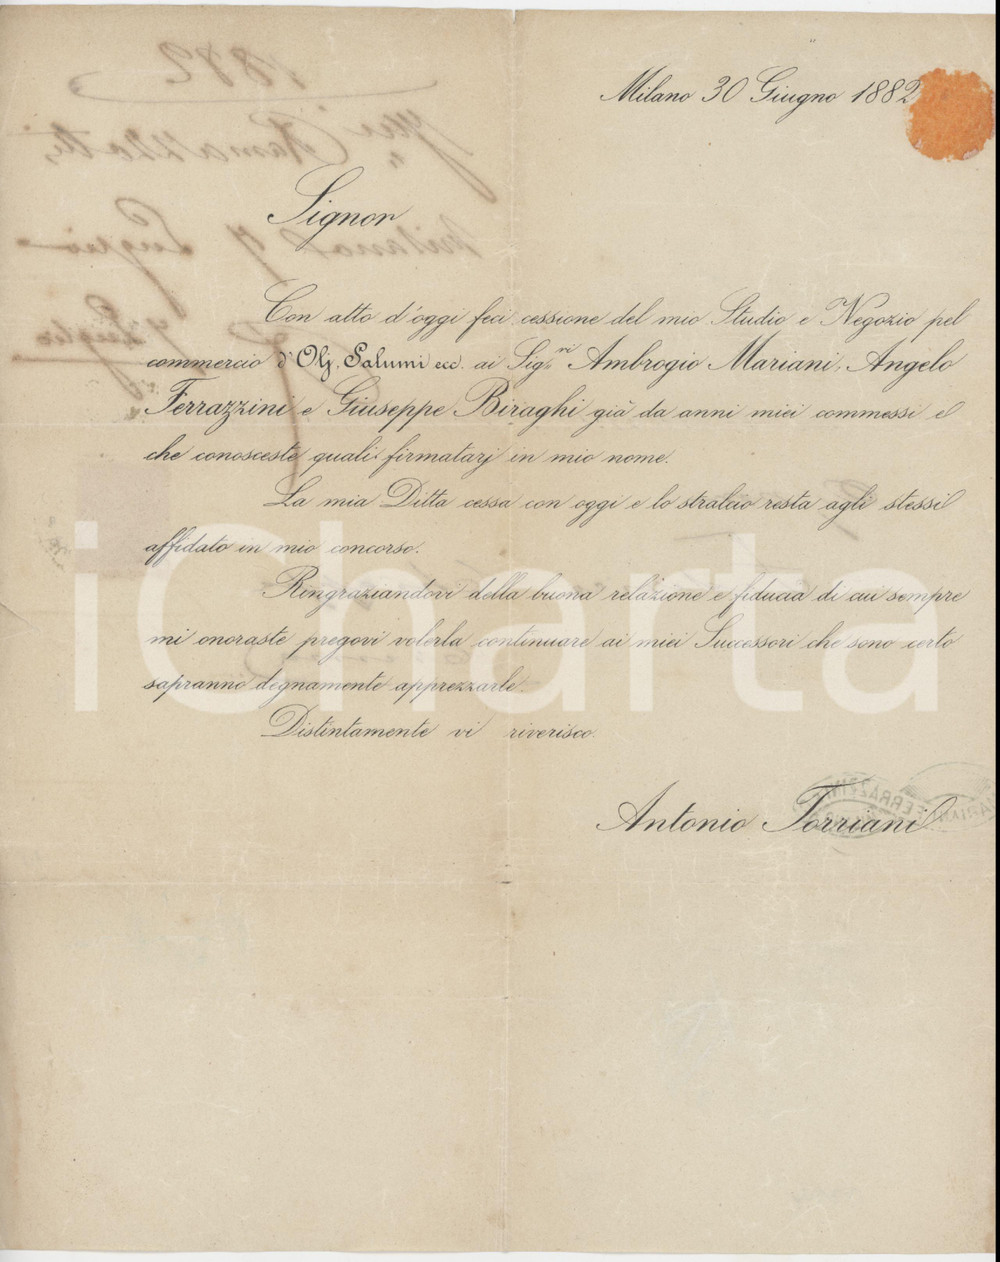 Milano 30 Giugno 1882
Signor
Con atto d'oggi feci cessione del mio Studio e Negozio pel
commercio d'Olj, Salumi ecc. ai Sig.ri Ambrogio Mariani, Angelo
Ferrazzini e Giuseppe Biraghi già da anni miei commessi e
che conosceste quali firmatarj in mio nome.
La mia Ditta cessa con oggi e lo stralcio resta agli stessi
affidato in mio concorso.
Ringraziandovi della buona relazione e fiducia di cui sempre
mi onoraste pregovi volerla continuare ai miei Successori che sono certo
sapranno degnamente apprezzarle.
Distintamente vi riverisco.
Antonio Torriani
iCharta